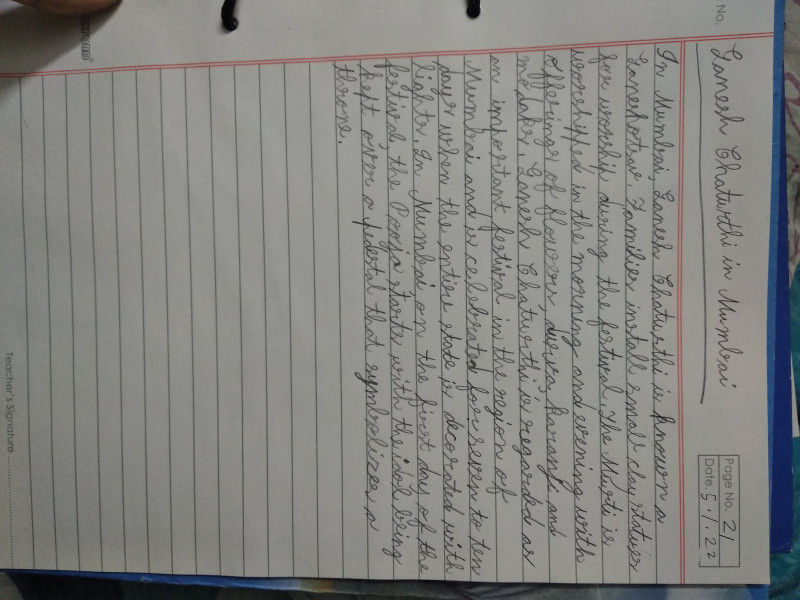 No.
Page No. 21
Date. 5.1.22
Ganesh Chaturthi in Mumbai
In Mumbai, Ganesh Chaturthi is known a
Ganeshotsav. Families install small clay statues
for worship during the festival. The Murti is
worshipped in the morning and evening with
offerings of flowers, durva karanji and
modaks. Ganesh Chaturthi is regarded as
an important festival in the region of
Mumbai and is celebrated for seven to ten
days when the entire state is decorated with
lights. In Mumbai on the first day of the
festival the Pooja starts with the idol being
kept over a pedestal that symbolizes a
throne.
Teacher's Signature